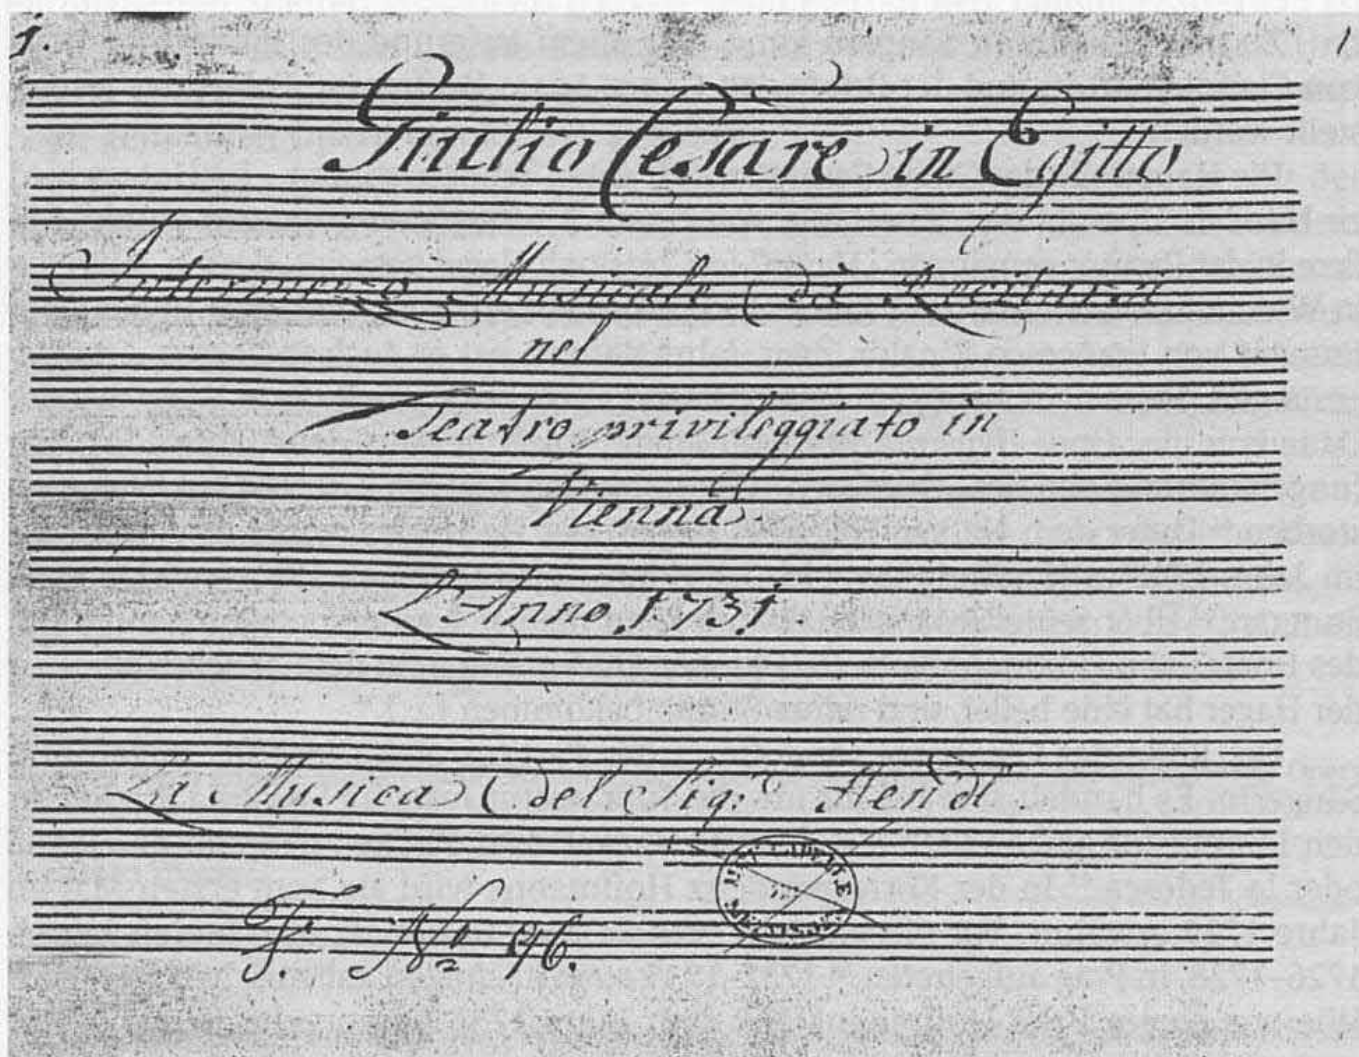 1. 1
Giulio Cesare in Egitto
Intermezzo Musicale da Recitarsi
nel
Teatro privileggiato in
Vienna
L'Anno 1731.
La Musica del Sigr: Hendl
F. No 96.